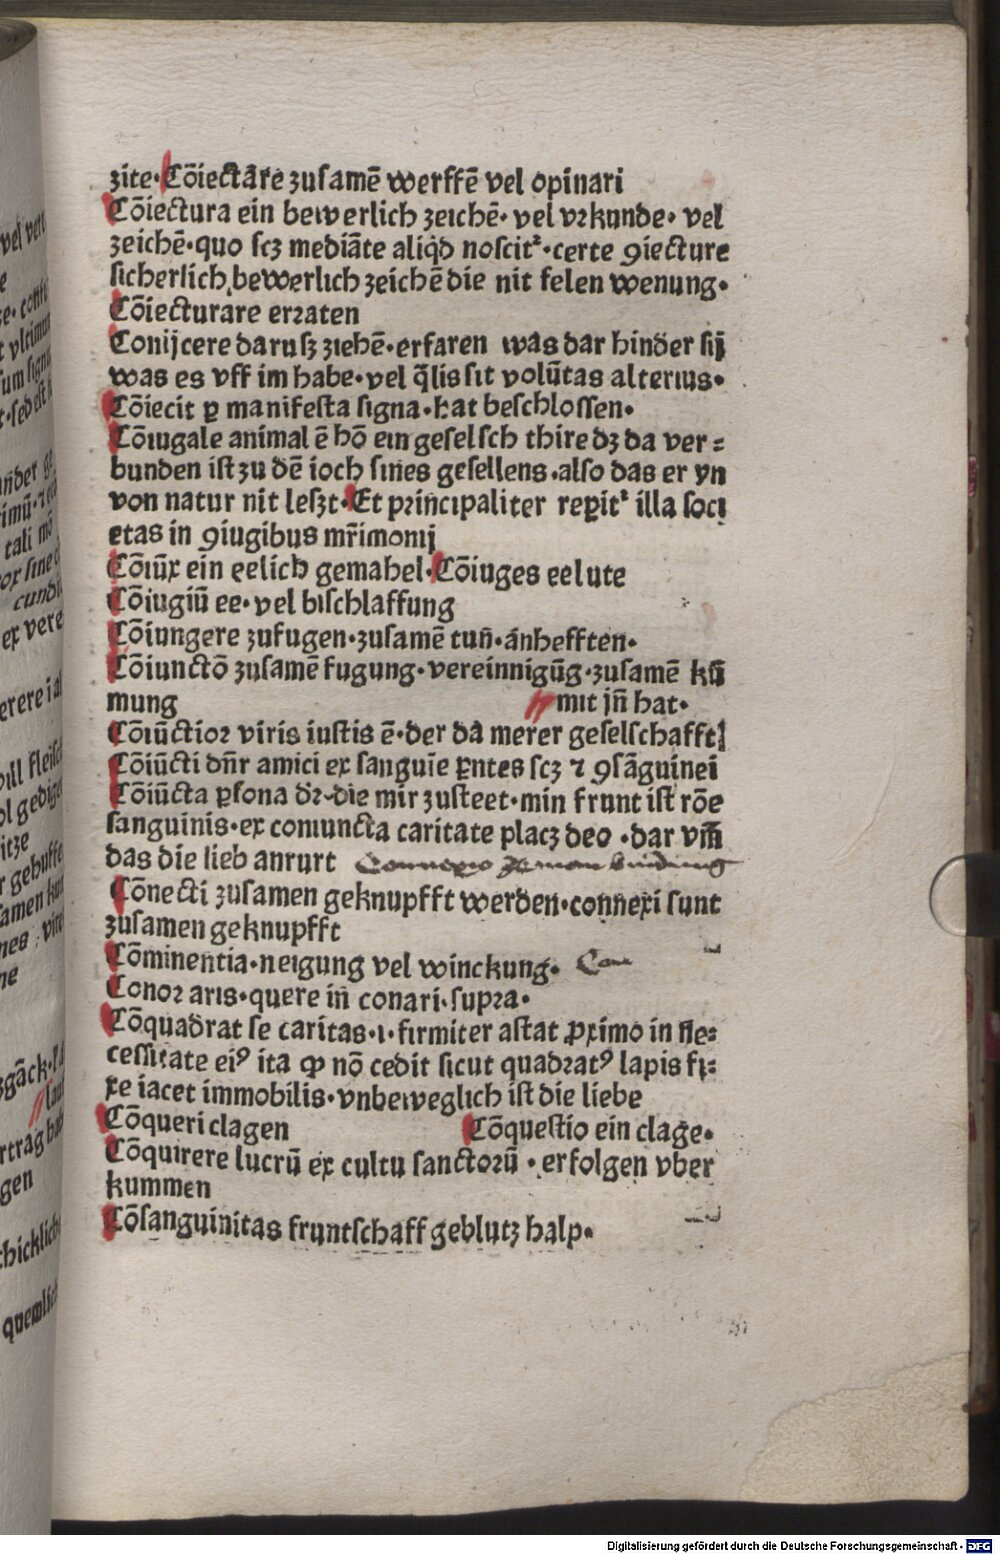 zite·Cōiectāre zuſamē werffē vel opinari
Cōiectura ein bewerlich zeichē· vel vꝛkunde· vel
zeichē·quo ſcz mediāte aliqd noſcit᷑·certe ꝯiecture
ſicherlich bewerlich zeichē die nit felen wenung·
Cōiecturare erꝛaten
Conijcere daruſz ziehē·erfaren was dar hinder ſij
was es vff im habe·vel q̄lis ſit volūtas alterius·
Cōiecit ꝑ manifeſta ſigna·hat beſchloſſen·
Cōiugale animal ē hō ein geſelſch thire dz da ver⸗
bunden iſt zu dē ioch ſines geſellens·alſo das er yn
von natur nit leſzt·Et pꝛincipaliter reꝑit᷑ illa ſoci
etas in ꝯiugibus mr̄imonij
Cōiūx ein eelich gemahel·Cōiuges eelute
Cōiugiū ee·vel biſchlaffung
Cōiungere zufugen·zuſamē tun̄·anhefften·
Cōiunctō zuſamē fugung·vereinnigūg·zuſamē kū
mung
mit jn̄ hat·
Cōiūctioꝛ viris iuſtis ē·der da merer geſelſchafft
Cōiūcti dn̄r amici ex ſanguīe ꝑntes ſcz ⁊ ꝯſāguinei
Cōiūcta ꝑſona dꝛ·die mir zuſteet·min frunt iſt rōe
ſanguinis·ex coniuncta caritate placz deo ·dar vm̄
das die lieb anrurt Connexio zamen bindung
Cōnecti zuſamen geknupfft werden·connexi ſunt
zuſamen geknupfft
Cōminentia·neigung vel winckung·
Conoꝛ aris·quere in̄ conari·ſupꝛa·
Cōquadrat ſe caritas·i·firmiter aſtat ꝓximo in ne⸗
ceſſitate eiꝰ ita ꝙ nō cedit ſicut quadꝛatꝰ lapis fi⸗
xe iacet immobilis·vnbeweglich iſt die liebe
Cōqueri clagen Cōqueſtio ein clage·
Cōquirere lucrū ex cultu ſanctoꝛū ·erfolgen vber
kummen
Cōſanguinitas fruntſchaff geblutz halp·
Digitalisierung gefördert durch die Deutsche Forschungsgemeinschaft · DFG